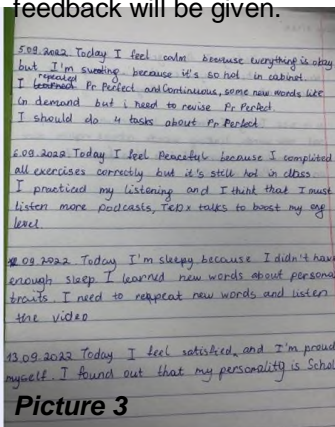 feedback will be given.
5.09.2022 Today I feel calm because everything is okay
but I'm sweating because it's so hot in cabinet.
I repeated Pr Perfect and Continuous, some new words like
in demand but i need to revise Pr Perfect.
I should do 4 tasks about Pr Perfect.
6.09.2022 Today I feel Peaceful because I complited
all exercises correctly but it's still hot in class.
I practiced my listening and I think that I must
listen more podcasts, TeDx talks to boost my eng
level.
09.2022 Today I'm sleepy because I didn't have
enough sleep I learned new words about persona
traits. I need to reappeat new words and listen
the video
13.09.2022 Today I feel satisfied, and I'm proud
myself. I found out that my personality is Schol
Picture 3